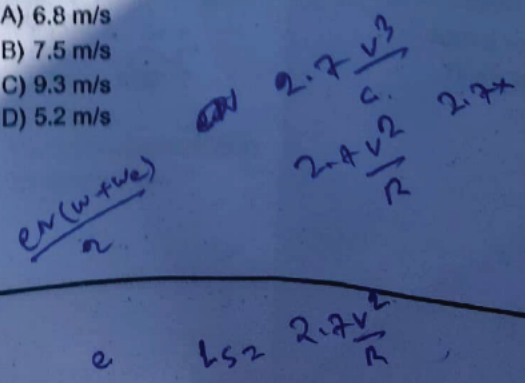 A) 6.8 m/s
B) 7.5 m/s
C) 9.3 m/s
D) 5.2 m/s
2.7 v3
2.7x
2.7 v2
R
eN(w+we)
2
e Ls = 2.7v2
R